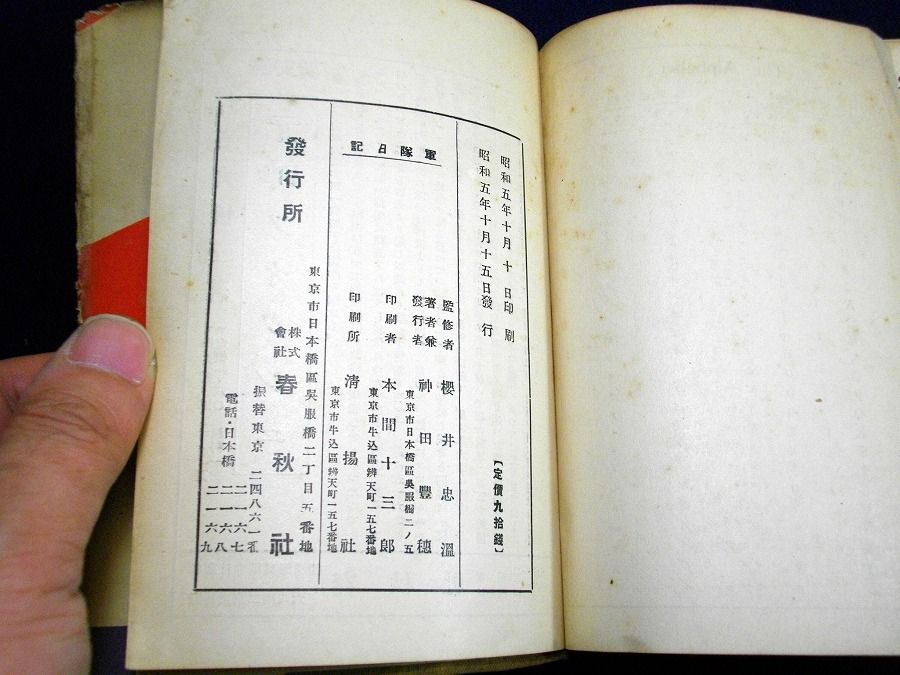 昭和五年十月十日印刷
昭和五年十月十五日發行
【定價九拾錢】
軍隊日記
監修者 櫻井忠溫
著者兼發行者 神田豐穗
東京市日本橋區吳服橋二ノ五
印刷者 本間十三郎
東京市牛込區辨天町一五七番地
印刷所 淸揚社
東京市牛込區辨天町一五七番地
發行所
東京市日本橋區吳服橋二丁目五番地
株式會社 春秋社
振替東京二四八六一番
電話・日本橋
二一六七
二一六八
二一六九